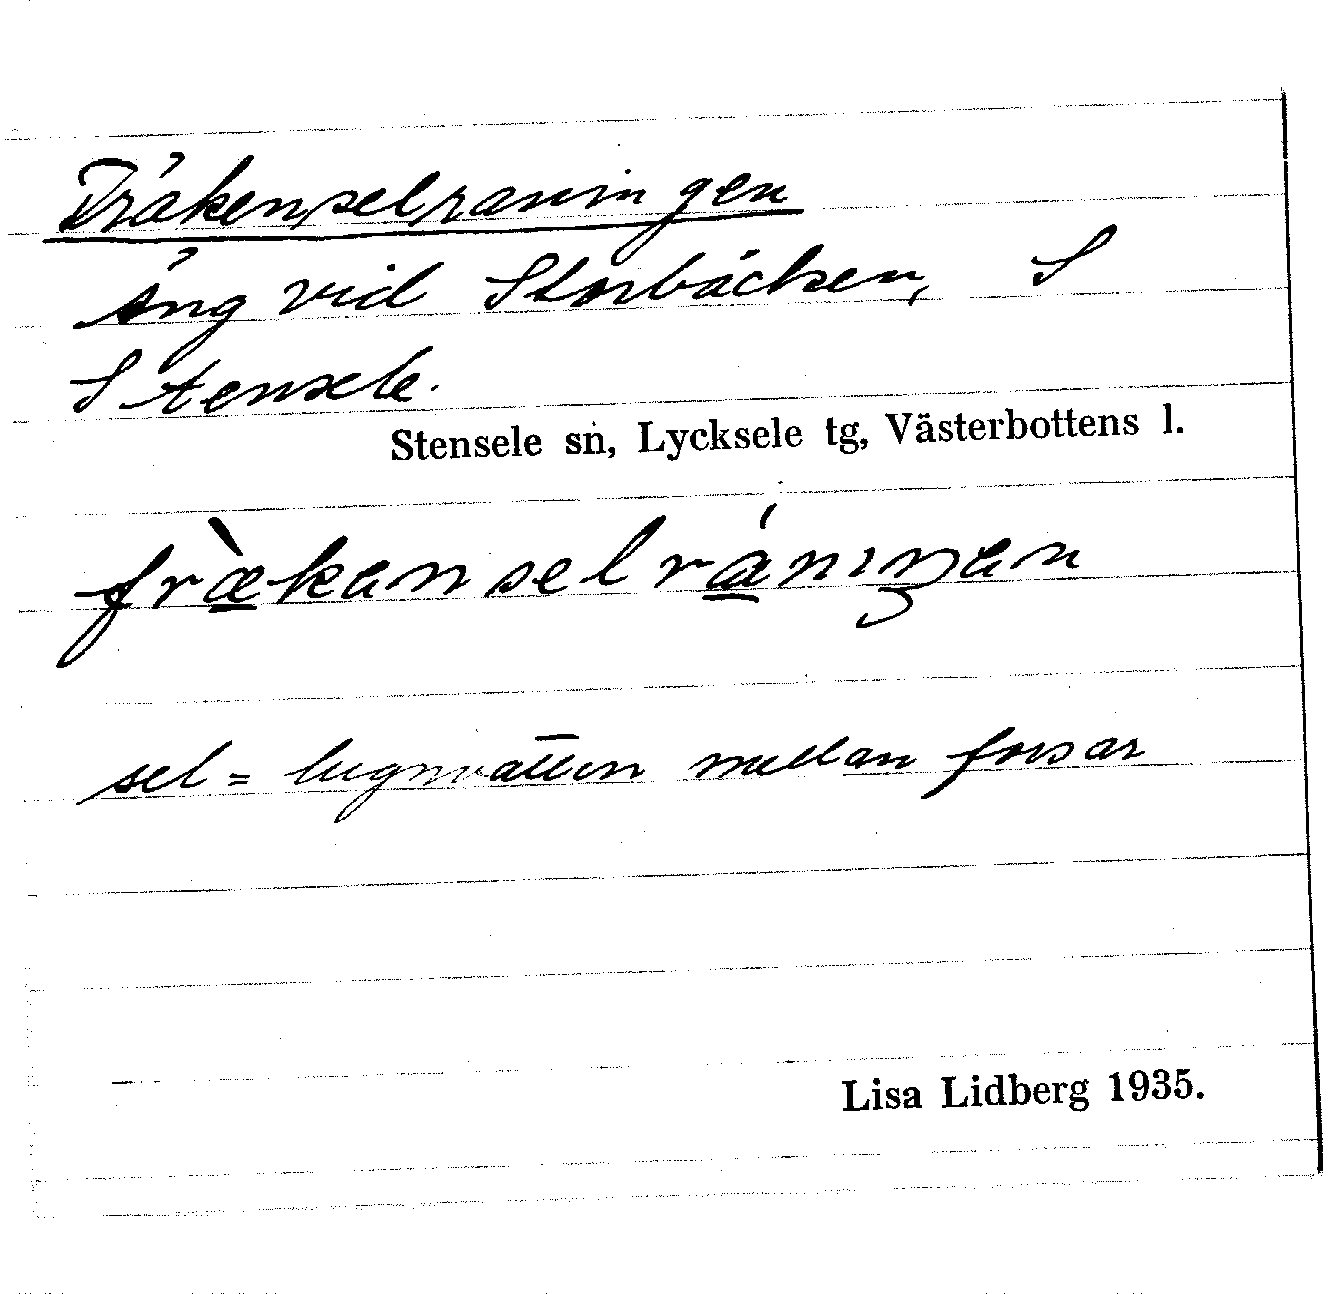 Fräkenselraningen
Äng vid Storbäcken, S
Stensele.
Stensele sn, Lycksele tg, Västerbottens l.
fræ̀kanselrániŋan
sel = lugnvatten mellan forsar
Lisa Lidberg 1935.